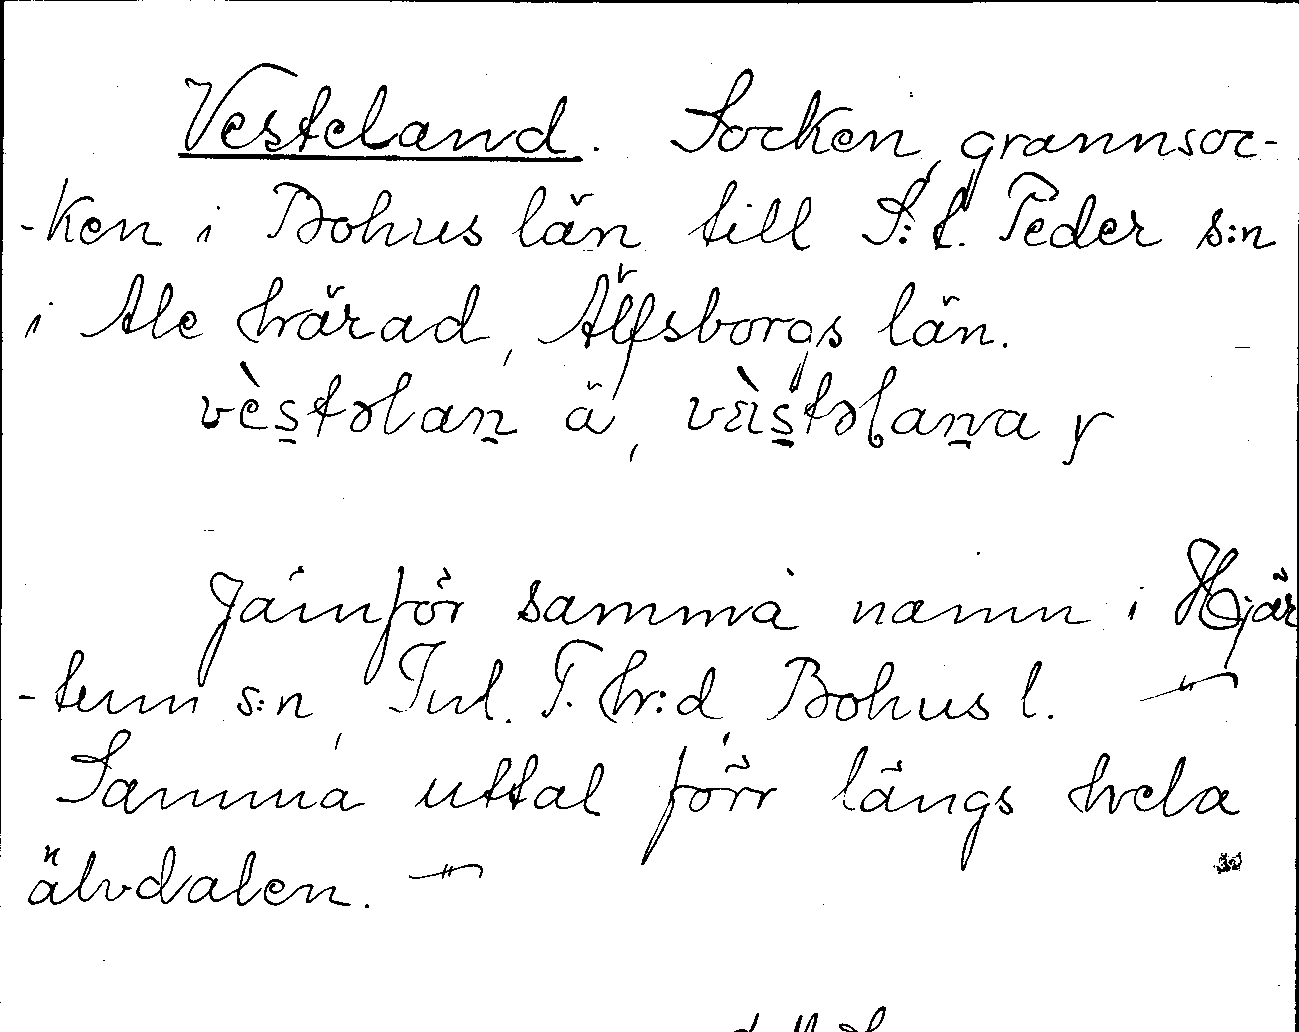 Vesteland. Socken, grannsoc-
-ken i Bohus län till S:t. Peder s:n
i Ale härad, Älfsborgs län.
vèstəlan ä, vèstəlana y
Jämför samma namn i Hjär
-tum s:n, Inl. T. hr:d, Bohus l.
Samma uttal förr längs hela
älvdalen.